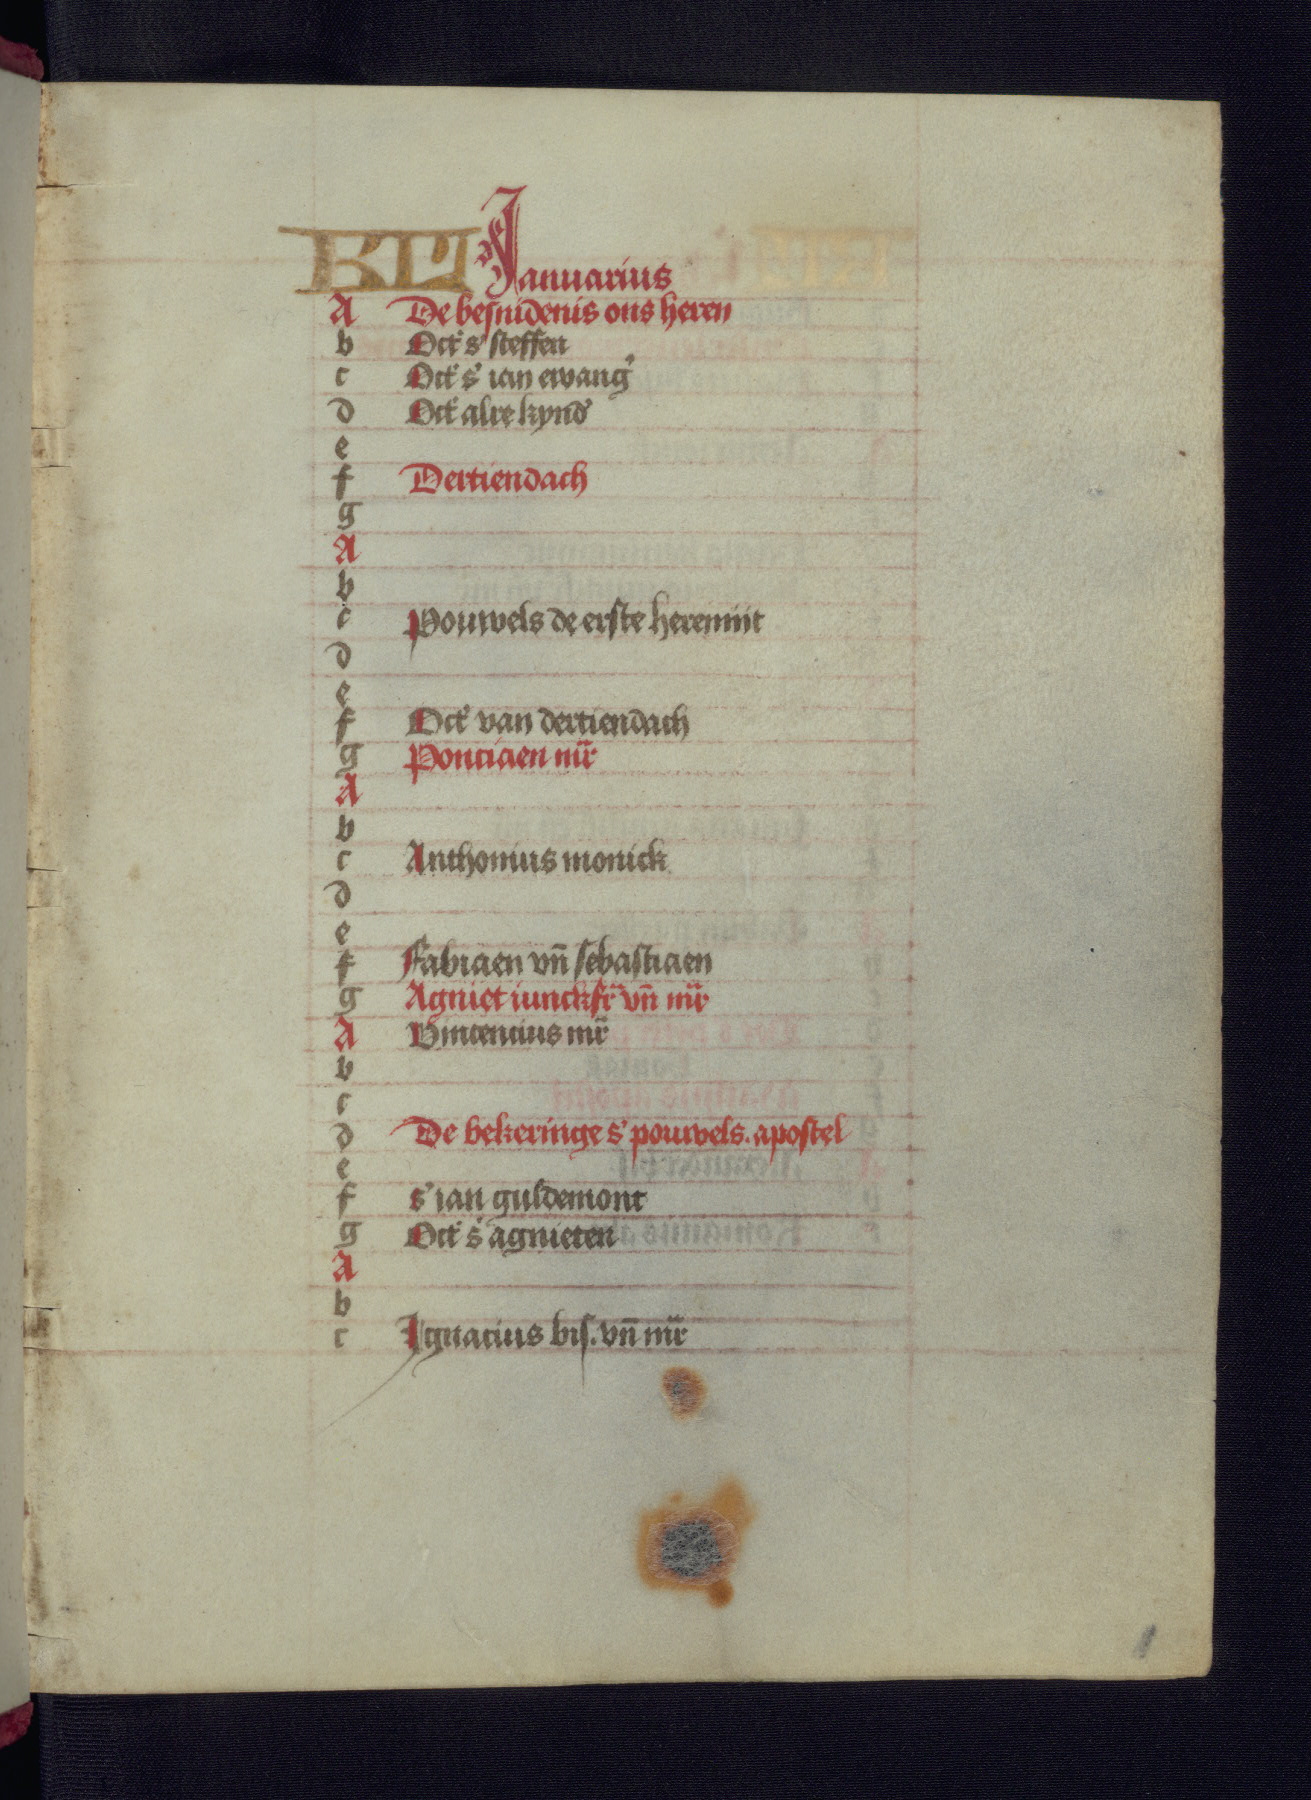 KL Januarius
A De besnidenis ons heren
b Oct' s' steffen
c Oct' s' ian ewang'
d Oct' alre kynd'
e
f Dertiendach
g
A
b
c Pouwels de erste heremiit
d
e
f Oct' van dertiendach
g Ponciaen mr̄
A
b
c Anthonius monick
d
e
f Fabiaen vn̄ sebastiaen
g Agniet iunckfr̄ vn̄ mr̄
A Vincencius mr̄
b
c
d De bekeringe s' pouwels. apostel
e
f s' ian guldemont
g Oct' s' agnieten
A
b
c Ignacius bis. vn̄ mr̄
1